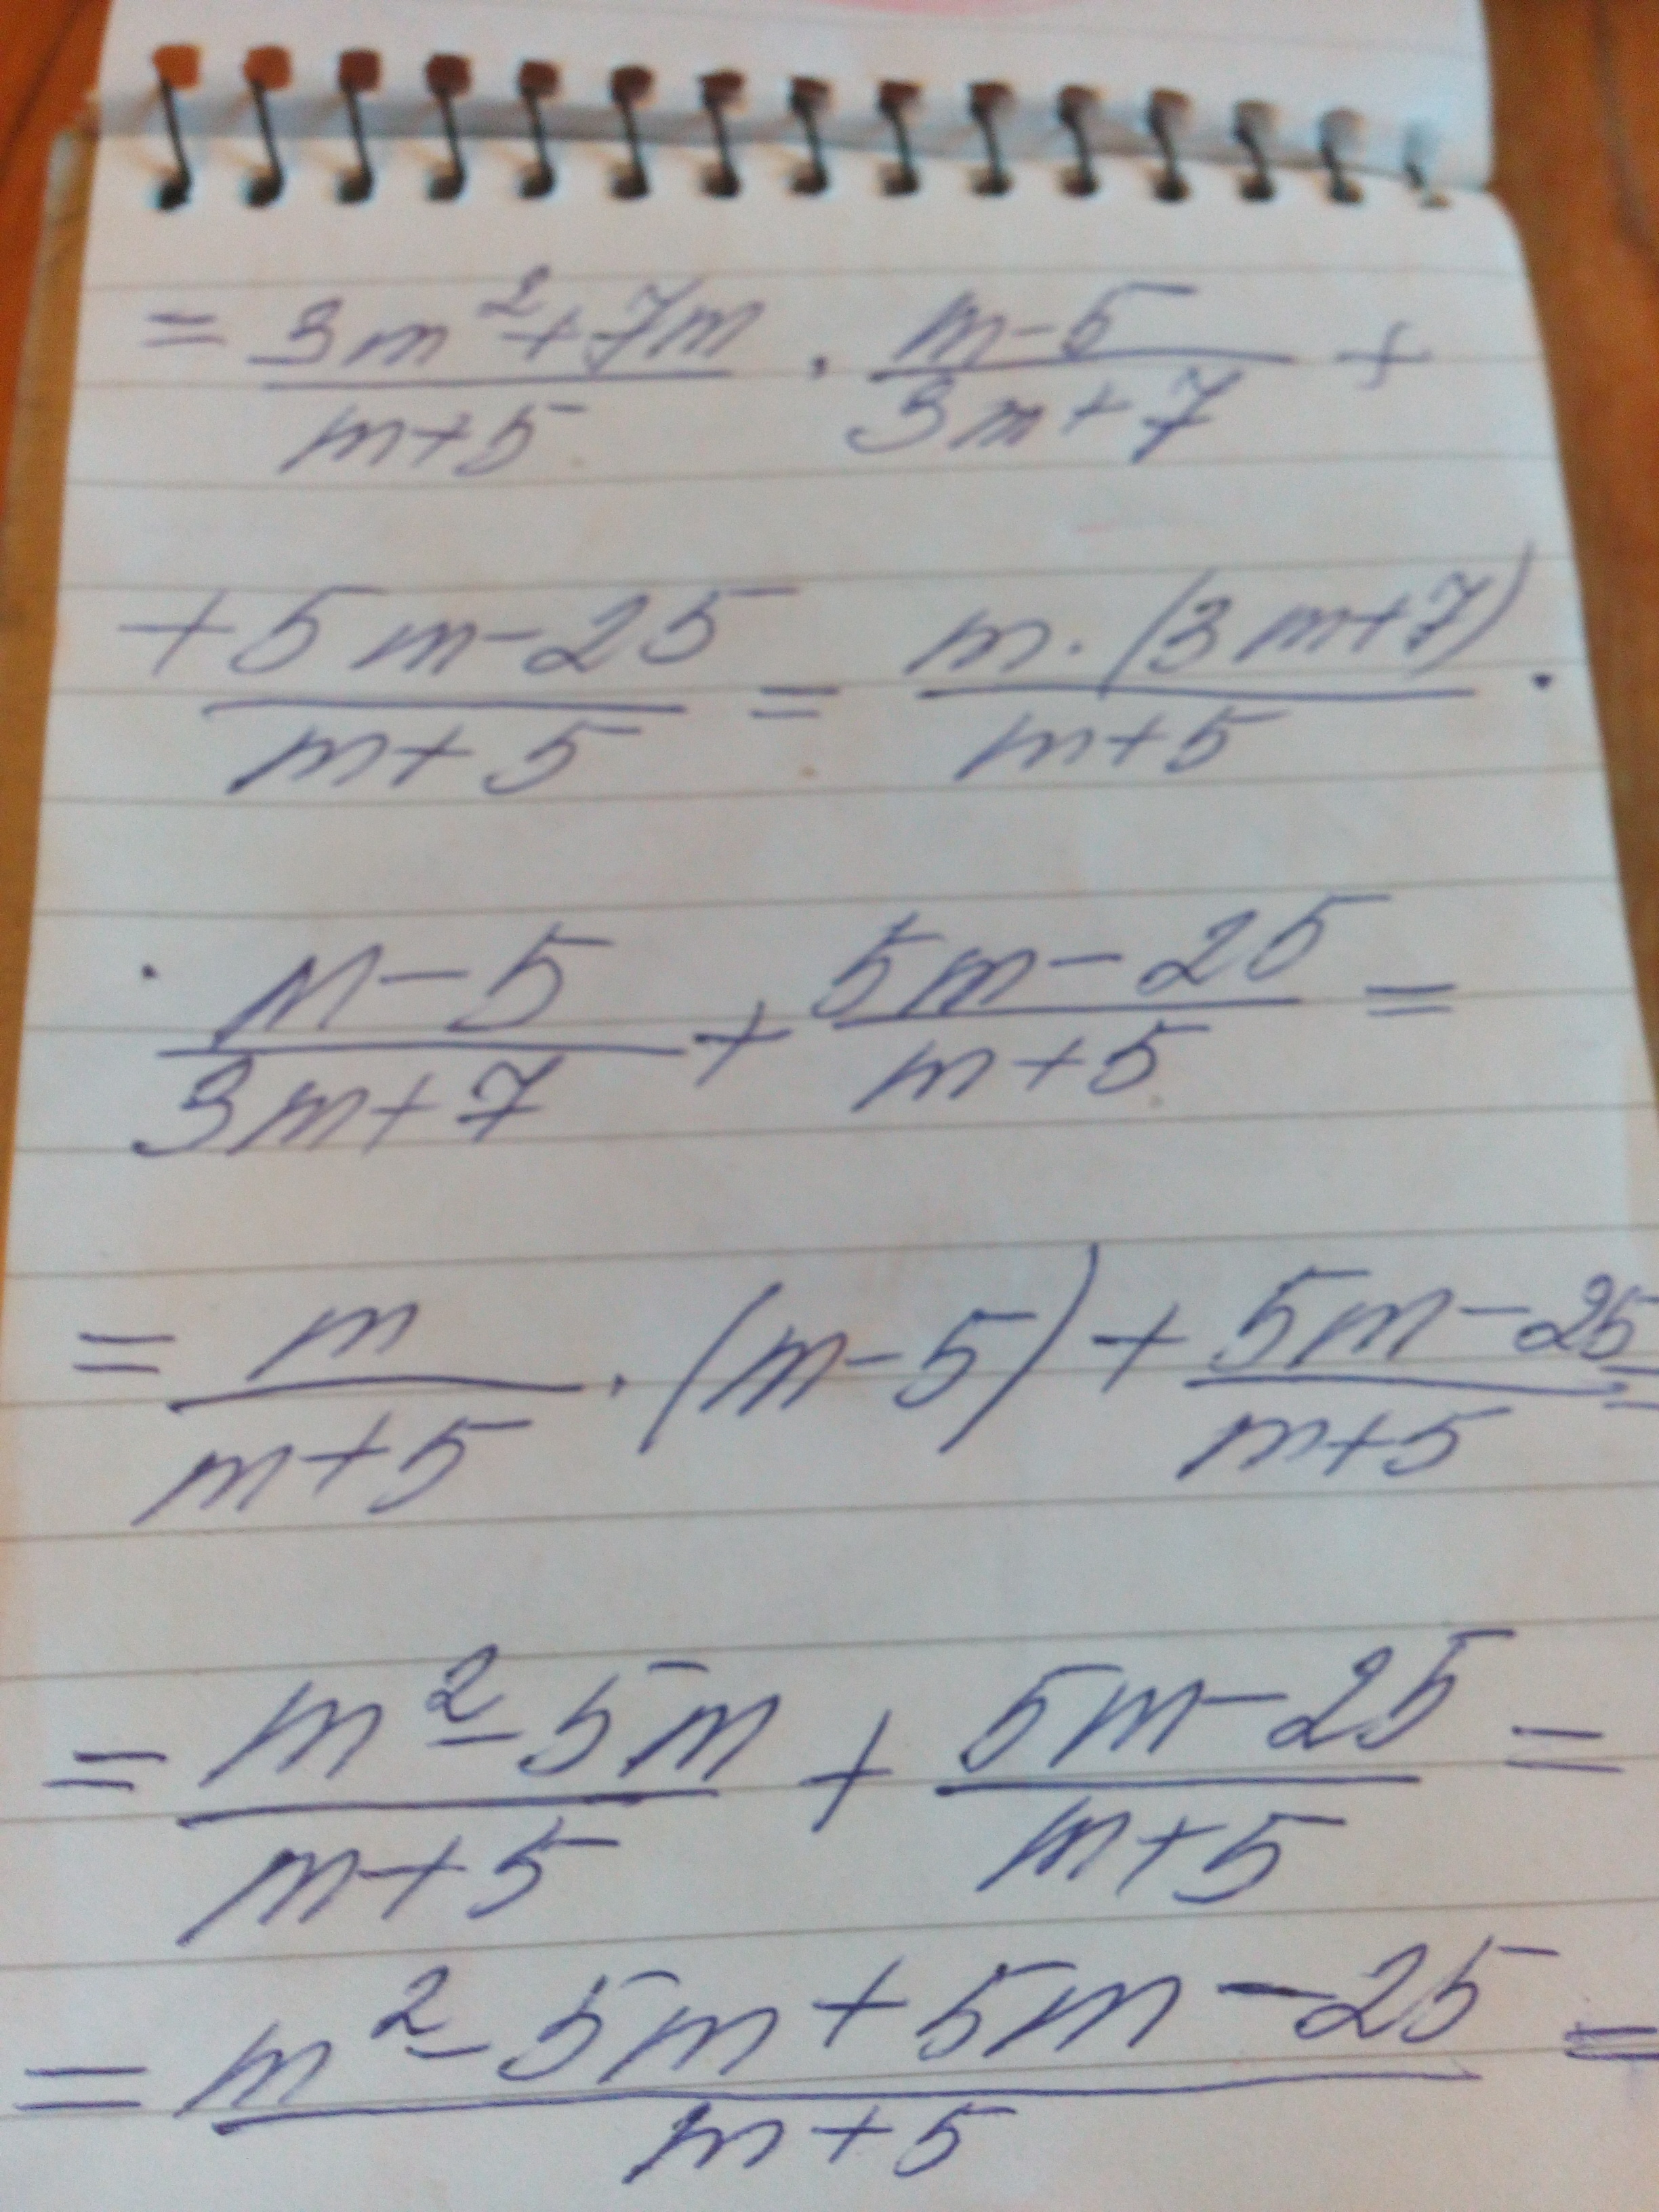 = (3m²+7m)/(m+5) · (m-5)/(3m+7) +
+ (5m-25)/(m+5) = (m·(3m+7))/(m+5) ·
· (m-5)/(3m+7) + (5m-25)/(m+5) =
= m/(m+5) · (m-5) + (5m-25)/(m+5) =
= (m²-5m)/(m+5) + (5m-25)/(m+5) =
= (m²-5m+5m-25)/(m+5) =